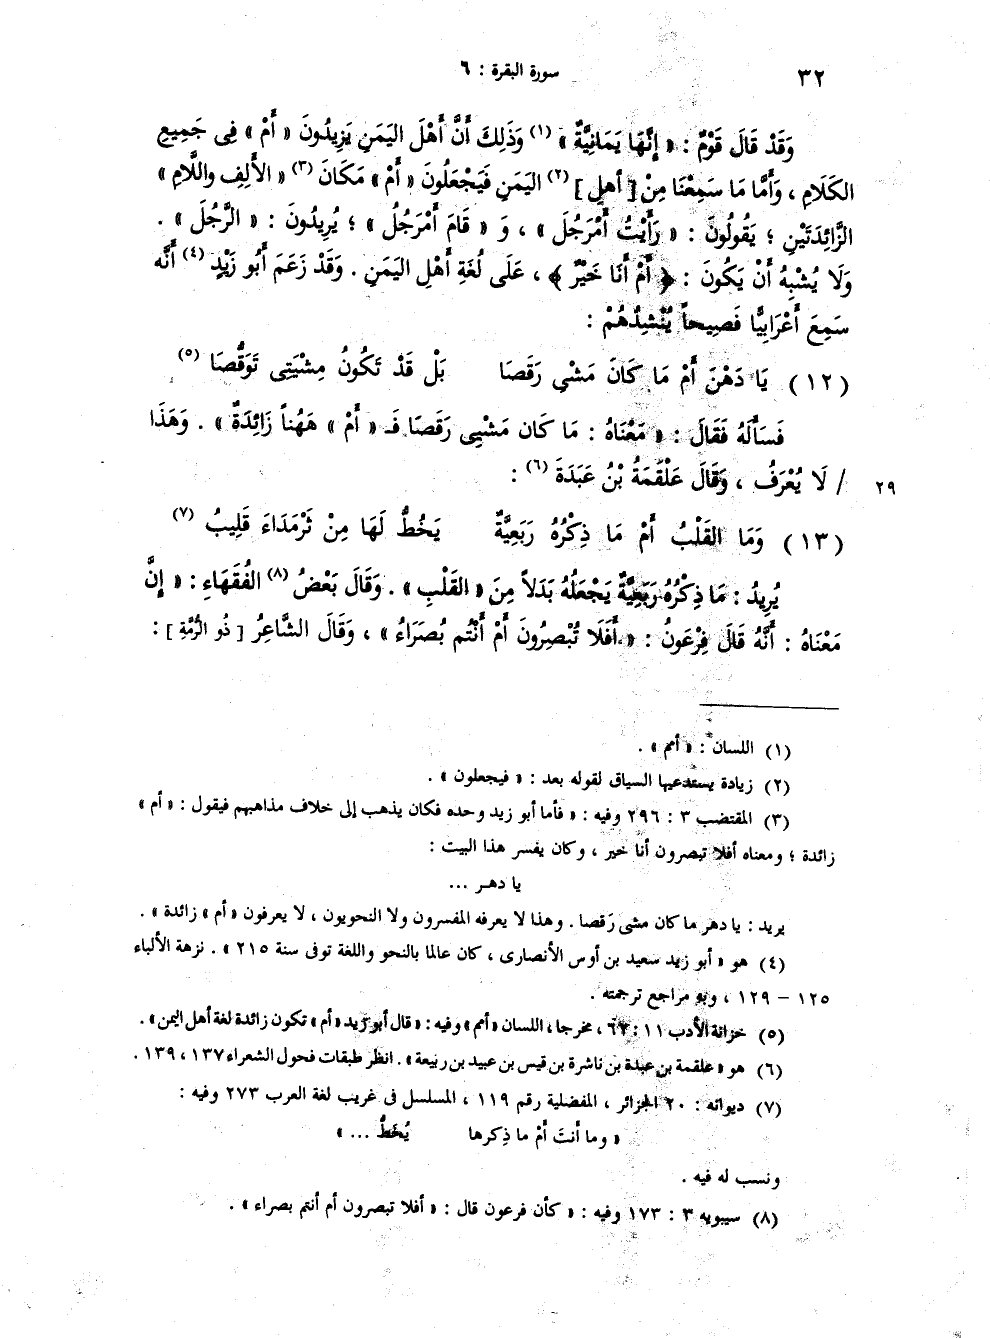 ٣٢
سورة البقرة : ٦
وَقَدْ قَالَ قَوْمٌ : « إِنَّهَا يَمَانِيَّةٌ » (١) وَذَلِكَ أَنَّ أَهْلَ اليَمَنِ يَزِيدُونَ « أَمْ » فِى جَمِيعِ
الكَلَامِ ، وَأَمَّا مَا سَمِعْنَا مِنْ [ أهلِ ] (٢) اليَمَنِ فَيَجْعَلُونَ « أَمْ » مَكَانَ (٣) « الأَلِفِ واللَّامِ »
الزَّائِدَتَيْنِ ؛ يَقُولُونَ : « رَأَيْتُ أَمْرَجُلَ » ، وَ « قَامَ أَمْرَجُلُ » ؛ يُرِيدُونَ : « الرَّجُلَ » .
وَلَا يُشْبِهُ أَنْ يَكُونَ : ﴿ أَمْ أَنَا خَيْرٌ ﴾ ، عَلَى لُغَةِ أَهْلِ اليَمَنِ . وَقَدْ زَعَمَ أَبُو زَيْدٍ (٤) أَنَّه
سَمِعَ أَعْرَابِيًّا فَصِيحاً يُنْشِدُهُمْ :
(١٢) يَا دَهْنَ أَمْ مَا كَانَ مَشْيِ رَقَصَا بَلْ قَدْ تَكُونُ مِشْيَتِى تَوَقُّصَا (٥)
فَسَأَلَهُ فَقَالَ : « مَعْنَاهُ : مَا كَان مَشْيِى رَقَصَا فَـ « أَمْ » هَهُناً زَائِدَةٌ » . وَهَذَا
٢٩ / لَا يُعْرَفُ ، وَقَالَ عَلْقَمَةُ بْنُ عَبَدَةَ (٦) :
(١٣) وَمَا القَلْبُ أَمْ مَا ذِكْرُهُ رَبَعِيَّةٌ يَخُطُّ لَهَا مِنْ ثَرْمَدَاءَ قَلِيبُ (٧)
يُرِيدُ : مَا ذِكْرُهُ رَبَعِيَّةٌ يَجْعَلُهُ بَدَلاً مِنَ « القَلْبِ » . وَقَالَ بَعْضُ (٨) الفُقَهَاءِ : « إِنَّ
مَعْنَاهُ : أَنَّهُ قَالَ فِرْعَونُ : « أَفَلَا تُبْصِرُونَ أَمْ أَنْتُم بُصَرَاءُ » ، وَقَالَ الشَّاعِرُ [ ذُو الرُّمَّةِ ] :
(١) اللسان : « أمم » .
(٢) زيادة يستدعيها السياق لقوله بعد : « فيجعلون » .
(٣) المقتضب ٣ : ٢٩٦ وفيه : « فأما أبو زيد وحده فكان يذهب إلى خلاف مذاهبهم فيقول : « أم »
زائدة ؛ ومعناه أفلا تبصرون أنا خير ، وكان يفسر هذا البيت :
يا دهـر ...
يريد : يا دهر ما كان مشى رَقصا . وهذا لا يعرفه المفسرون ولا النحويون ، لا يعرفون « أم » زائدة » .
(٤) هو « أبو زيد سعيد بن أوس الأنصارى ، كان عالما بالنحو واللغة توفى سنة ٢١٥ » . نزهة الألباء
١٢٥ – ١٢٩ ، وبه مراجع ترجمته .
(٥) خزانة الأدب ١١ : ٦٢ ، مخرجا ، اللسان « أمم » وفيه : « قال أبو زيد « أم » تكون زائدة لغة أهل اليمن » .
(٦) هو « علقمة بن عبدة بن ناشرة بن قيس بن عبيد بن ربيعة » . انظر طبقات فحول الشعراء ١٣٧ ، ١٣٩ .
(٧) ديوانه : ٢٠ الجزائر ، المفضلية رقم ١١٩ ، المسلسل فى غريب لغة العرب ٢٧٣ وفيه :
« وما أنتَ أمْ ما ذِكرها يُخَطُّ ... »
ونسب له فيه .
(٨) سيبويه ٣ : ١٧٣ وفيه : « كأن فرعون قال : « أفلا تبصرون أم أنتم بصراء » .